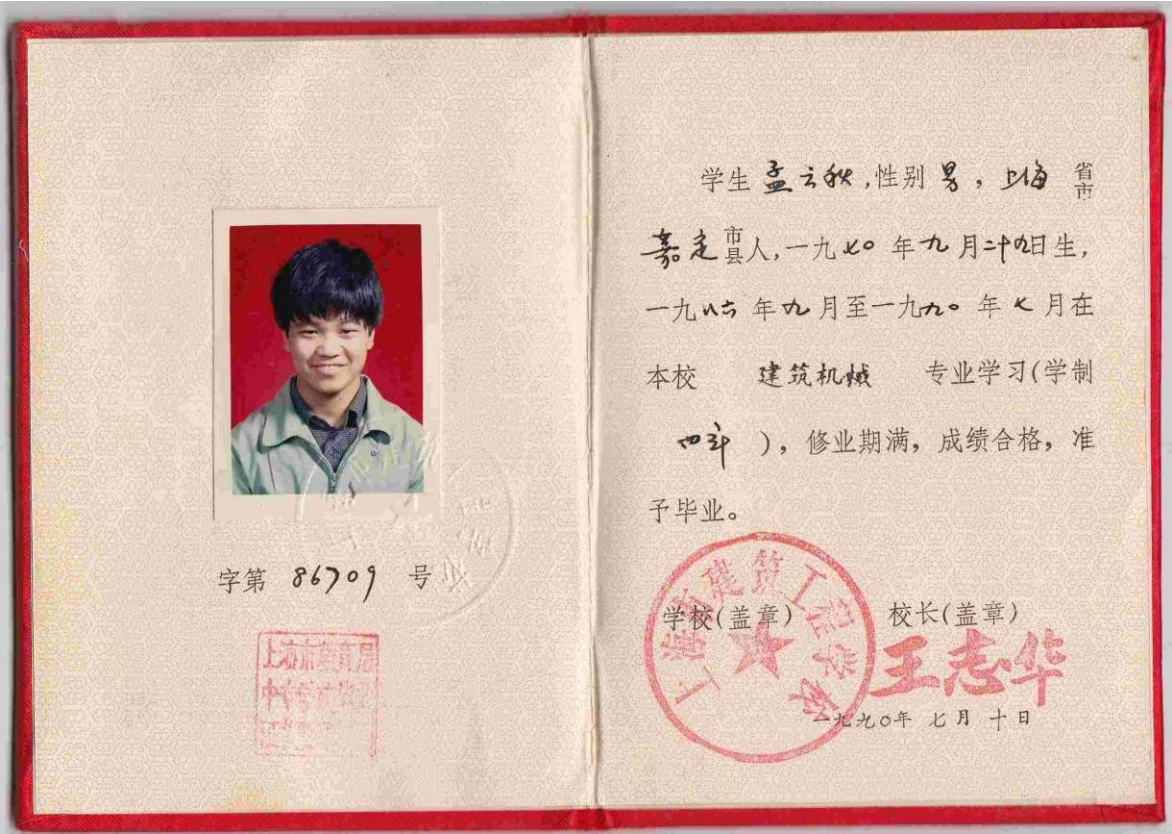 字第 86709 号
上海市教育局
学生 孟云秋,性别 男,上海 省市
嘉定 市县人,一九七〇年九月二十九日生,
一九八六年九月至一九九〇年七月在
本校 建筑机械 专业学习(学制
四年),修业期满,成绩合格,准
予毕业。
上海市建筑工程学校
学校(盖章) 校长(盖章)
王志华
一九九〇年 七月 十日